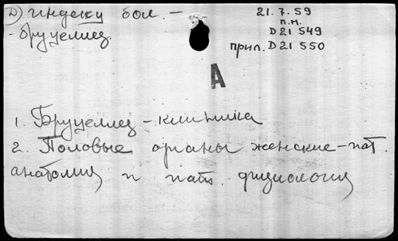 Д) индекси бол. -
- бруцеллез
21.7.59
п.м.
D21 549
прил. D21 550
А
1. Бруцеллез - клиника
2. Половые органы женские - пат.
анатомия и пат. физиология